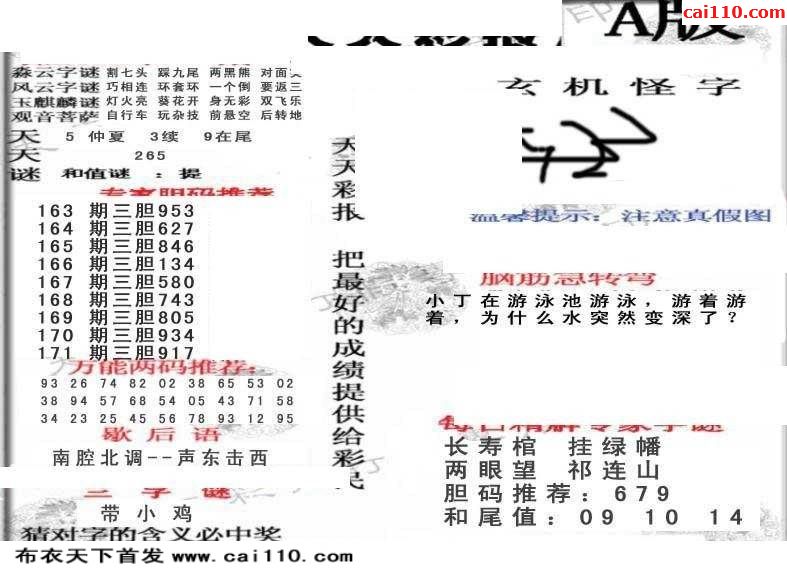 cai110.com
A版
森云字谜 割七头 踩九尾 两黑熊 对面
风云字谜 巧相连 环套环 一个倒 要返三
玉麒麟谜 灯火亮 葵花开 身无彩 双飞乐
观音菩萨 自行车 玩杂技 前悬空 后转地
天 5 仲夏 3续 9在尾
天 265
谜 和值谜 ：提
专家胆码推荐
163 期三胆953
164 期三胆627
165 期三胆846
166 期三胆134
167 期三胆580
168 期三胆743
169 期三胆805
170 期三胆934
171 期三胆917
万能两码推荐:
93 26 74 82 02 38 65 53 02
38 94 57 68 54 05 43 71 58
34 23 25 45 56 78 93 12 95
歇后语
南腔北调--声东击西
三字谜
带小鸡
猜对字的含义必中奖
布衣天下首发 www.cai110.com
天天彩报 把最好的成绩提供给彩民
玄机怪字
温馨提示：注意真假图
脑筋急转弯
小丁在游泳池游泳，游着游
着，为什么水突然变深了？
每日精解专家字谜
长寿棺 挂绿幡
两眼望 祁连山
胆码推荐：679
和尾值：09 10 14